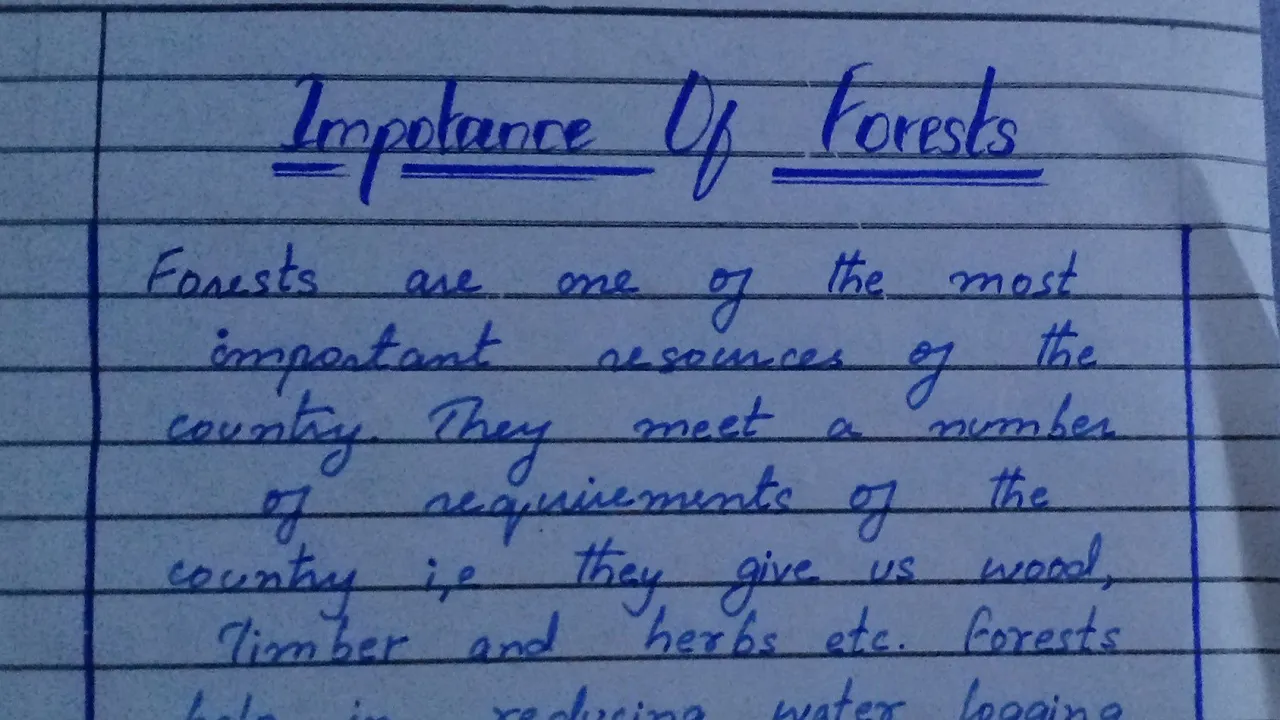 Impotance Of Forests
Forests are one of the most
important resources of the
country. They meet a number
of requirements of the
country i,e they give us wood,
Timber and herbs etc. Forests
help in reducing water logging